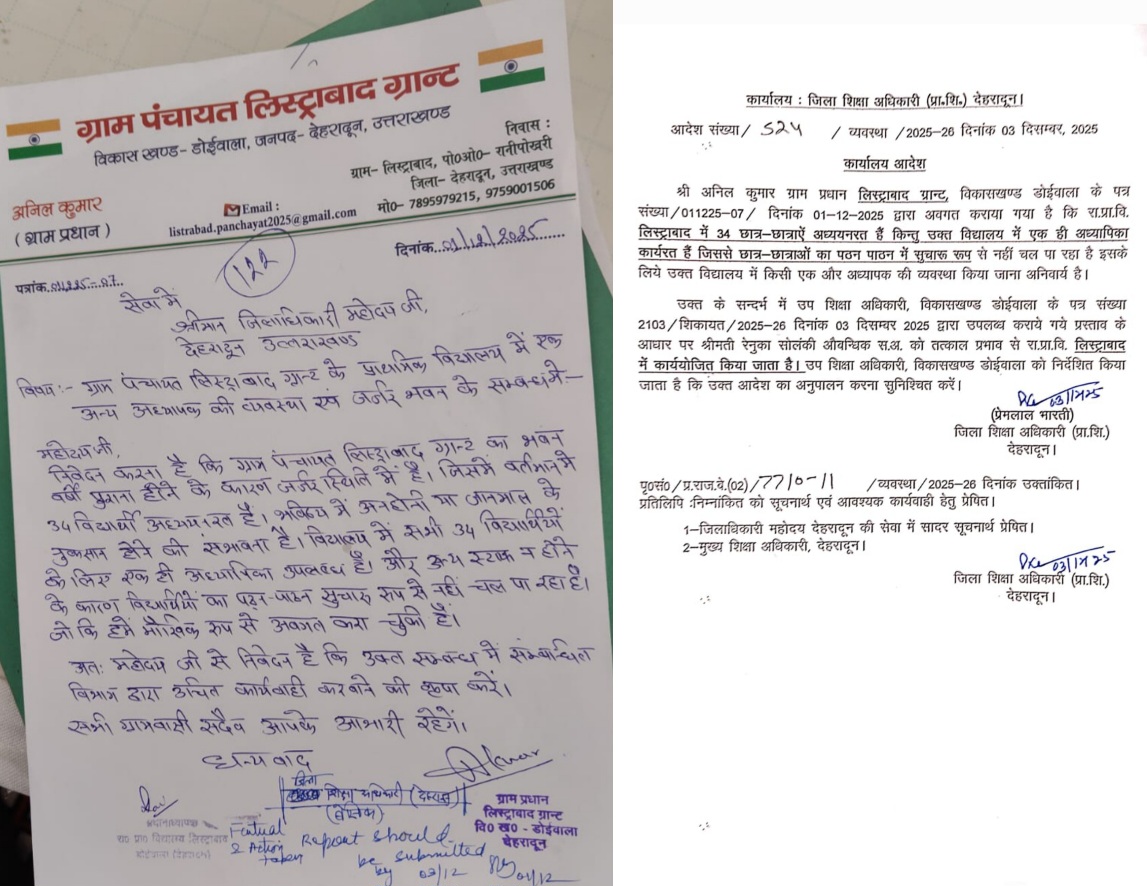 ग्राम पंचायत लिस्ट्राबाद ग्रान्ट
विकास खण्ड- डोईवाला, जनपद- देहरादून, उत्तराखण्ड
निवास :
ग्राम- लिस्ट्राबाद, पो०ओ०- रानीपोखरी
जिला- देहरादून, उत्तराखण्ड
मो०- 7895979215, 9759001506
अनिल कुमार
( ग्राम प्रधान )
Email :
listrabad.panchayat2025@gmail.com
पत्रांक.011225-07..
दिनांक...01/12/2025.......
122
सेवा में
श्रीमान जिलाधिकारी महोदय जी,
देहरादून उत्तराखण्ड
विषय:- ग्राम पंचायत लिस्ट्राबाद ग्रान्ट के प्राथमिक विद्यालय में एक
अन्य अध्यापक की व्यवस्था एवं जर्जर भवन के सम्बन्ध में:-
महोदय जी,
निवेदन करना है कि ग्राम पंचायत लिस्ट्राबाद ग्रान्ट का भवन
वर्षो पुराना होने के कारण जर्जर स्थिति में है। जिसमें वर्तमान मे
34 विद्यार्थी अध्ययनरत है। भविष्य में अनहोनी या जानमाल के
नुकसान होने की संभावना है। विद्यालय में सभी 34 विद्यार्थियों
के लिए एक ही अध्यापिका उपलब्ध है। और अन्य स्टाफ न होने
के कारण विद्यार्थियों का पठन-पाठन सुचारू रूप से नहीं चल पा रहा है।
जो कि हमें मौखिक रूप से अवगत करा चुकी है।
अतः महोदय जी से निवेदन है कि उक्त सम्बन्ध में सम्बन्धित
विभाग द्वारा उचित कार्यवाही करवाने की कृपा करें।
सभी ग्रामवासी सदैव आपके आभारी रहेगें।
धन्यवाद
जिला
शिक्षा अधिकारी (देहरादून)
(बेसिक)
ग्राम प्रधान
लिस्ट्राबाद ग्रान्ट
वि० ख० - डोईवाला
देहरादून
प्रधानाध्यापक
रा० प्रा० विद्यालय लिस्ट्राबाद
डोईवाला (देहरादून)
Factual
& Action
taken
Report should
be submitted
by 03/12
01/12
कार्यालय : जिला शिक्षा अधिकारी (प्रा.शि.) देहरादून।
आदेश संख्या/ 524 / व्यवस्था /2025-26 दिनांक 03 दिसम्बर, 2025
कार्यालय आदेश
श्री अनिल कुमार ग्राम प्रधान लिस्ट्राबाद ग्रान्ट, विकासखण्ड डोईवाला के पत्र
संख्या/011225-07/ दिनांक 01-12-2025 द्वारा अवगत कराया गया है कि रा.प्रा.वि.
लिस्ट्राबाद में 34 छात्र-छात्राऐं अध्ययनरत हैं किन्तु उक्त विद्यालय में एक ही अध्यापिका
कार्यरत हैं जिससे छात्र-छात्राओं का पठन पाठन में सुचारू रूप से नहीं चल पा रहा है इसके
लिये उक्त विद्यालय में किसी एक और अध्यापक की व्यवस्था किया जाना अनिवार्य है।
उक्त के सन्दर्भ में उप शिक्षा अधिकारी, विकासखण्ड डोईवाला के पत्र संख्या
2103/शिकायत/2025-26 दिनांक 03 दिसम्बर 2025 द्वारा उपलब्ध कराये गये प्रस्ताव के
आधार पर श्रीमती रेनुका सोलंकी औवन्धिक स.अ. को तत्काल प्रभाव से रा.प्रा.वि. लिस्ट्राबाद
में कार्ययोजित किया जाता है। उप शिक्षा अधिकारी, विकासखण्ड डोईवाला को निर्देशित किया
जाता है कि उक्त आदेश का अनुपालन करना सुनिश्चित करें।
(प्रेमलाल भारती)
जिला शिक्षा अधिकारी (प्रा.शि.)
देहरादून।
पृ०सं०/प्र.राज.वे.(02)/7710-11 /व्यवस्था/2025-26 दिनांक उक्तांकित।
प्रतिलिपि :निम्नांकित को सूचनार्थ एवं आवश्यक कार्यवाही हेतु प्रेषित।
1-जिलाधिकारी महोदय देहरादून की सेवा में सादर सूचनार्थ प्रेषित।
2-मुख्य शिक्षा अधिकारी, देहरादून।
जिला शिक्षा अधिकारी (प्रा.शि.)
देहरादून।